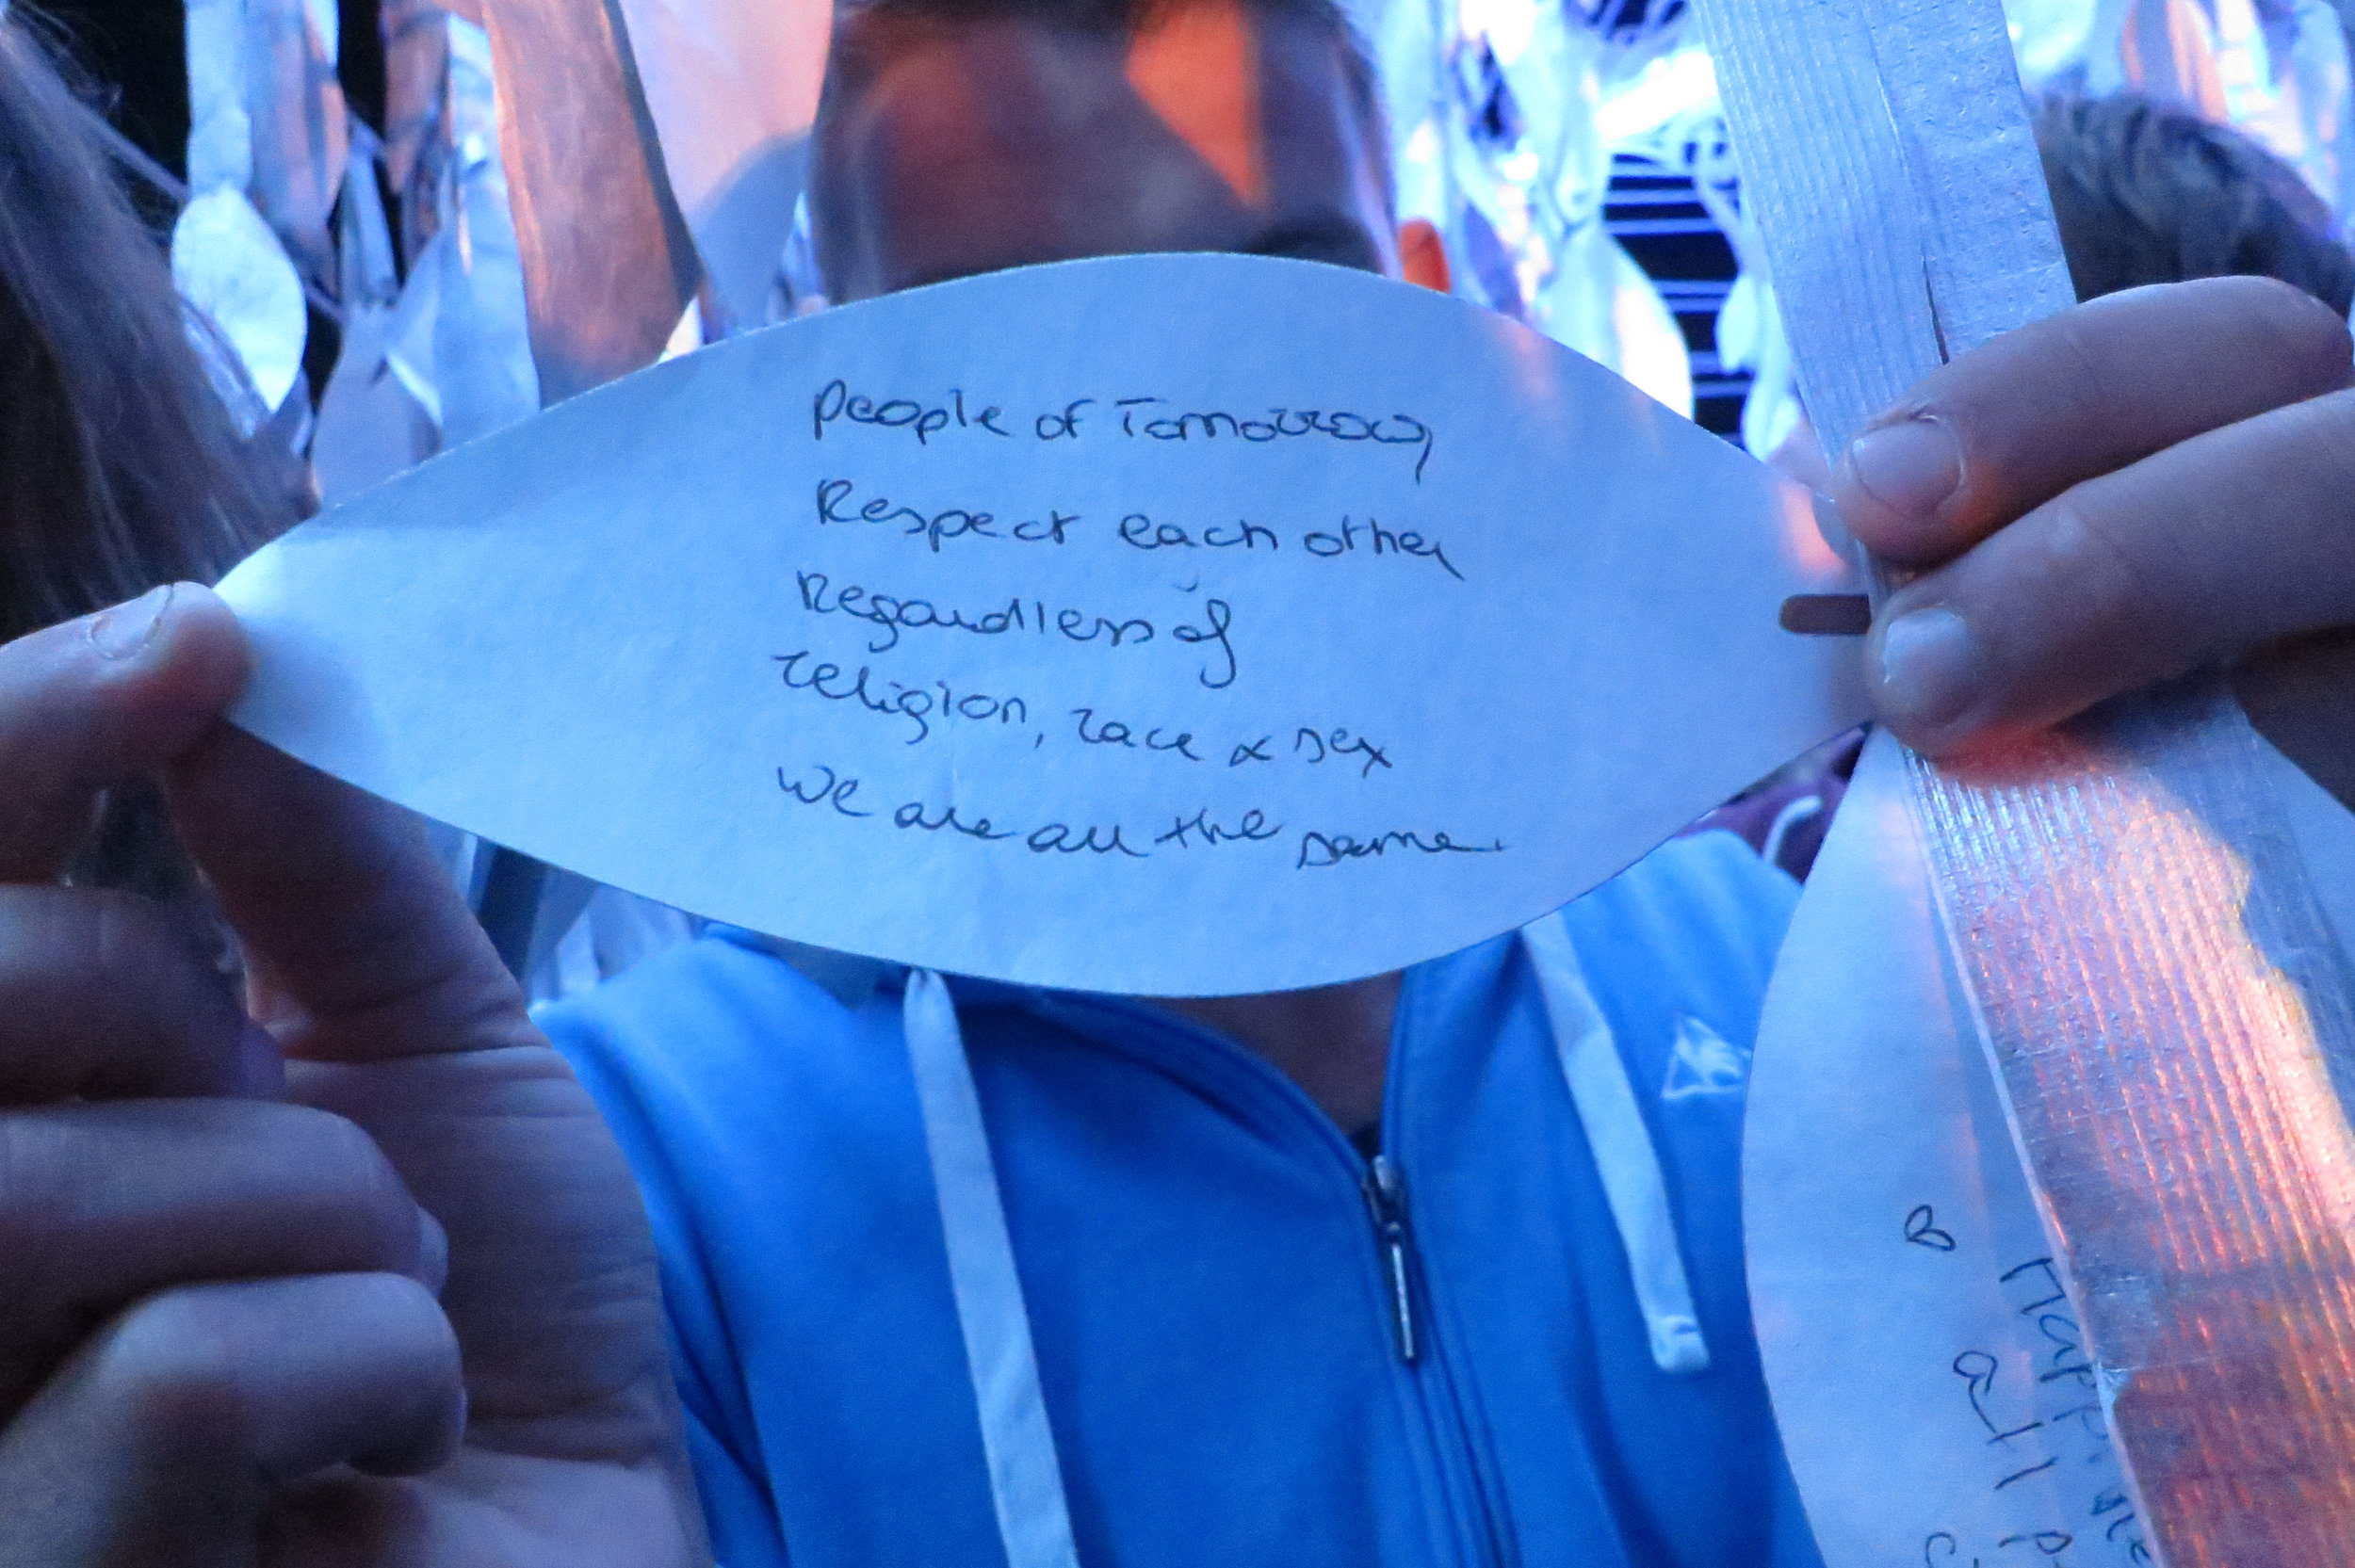 People of Tomorrow,
Respect each other
Regardless of
religion, race & sex
We are all the same.
all